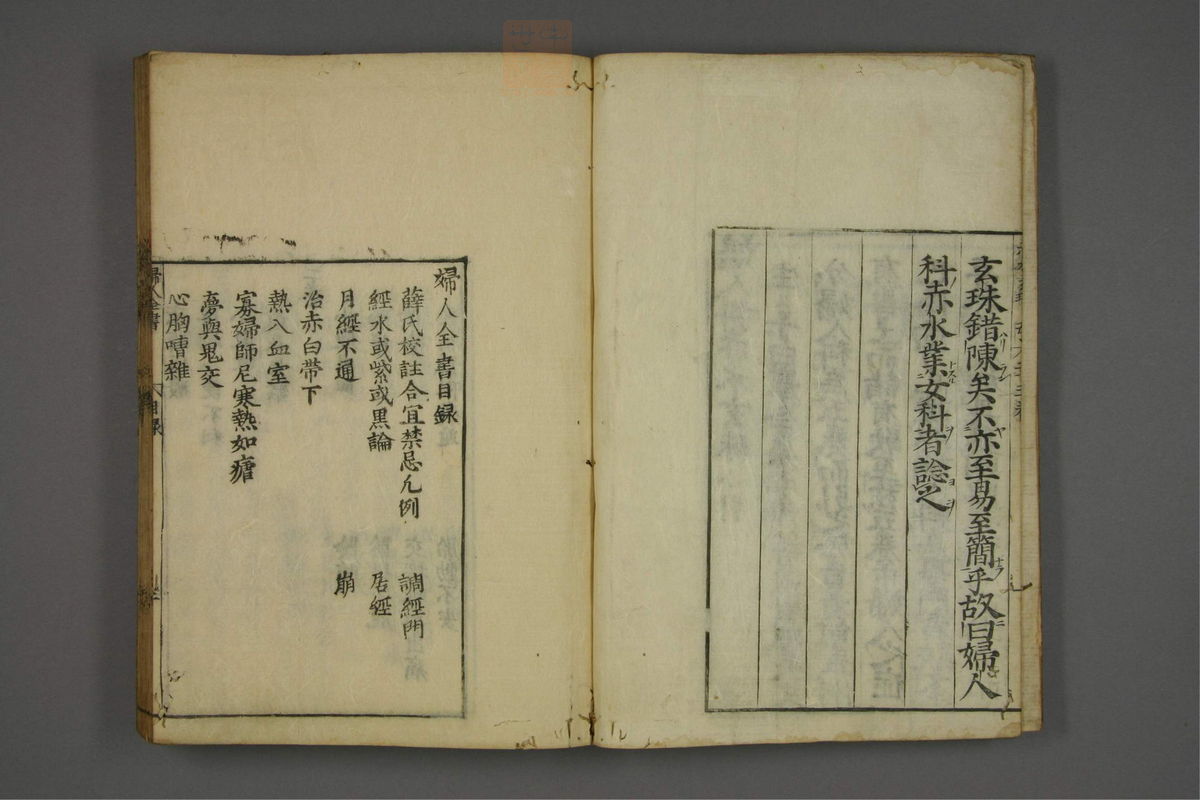 玄珠錯陳矣不亦至易至簡乎故曰婦人
科赤水業女科者諗之
婦人全書目録
薛氏校註合宜禁忌凡例　調經門
經水或紫或黒論　居經
月經不通　崩
治赤白帯下
熱入血室
寡婦師尼寒熱如瘧
夢與鬼交
心胸嘈雜
婦人全書　目録